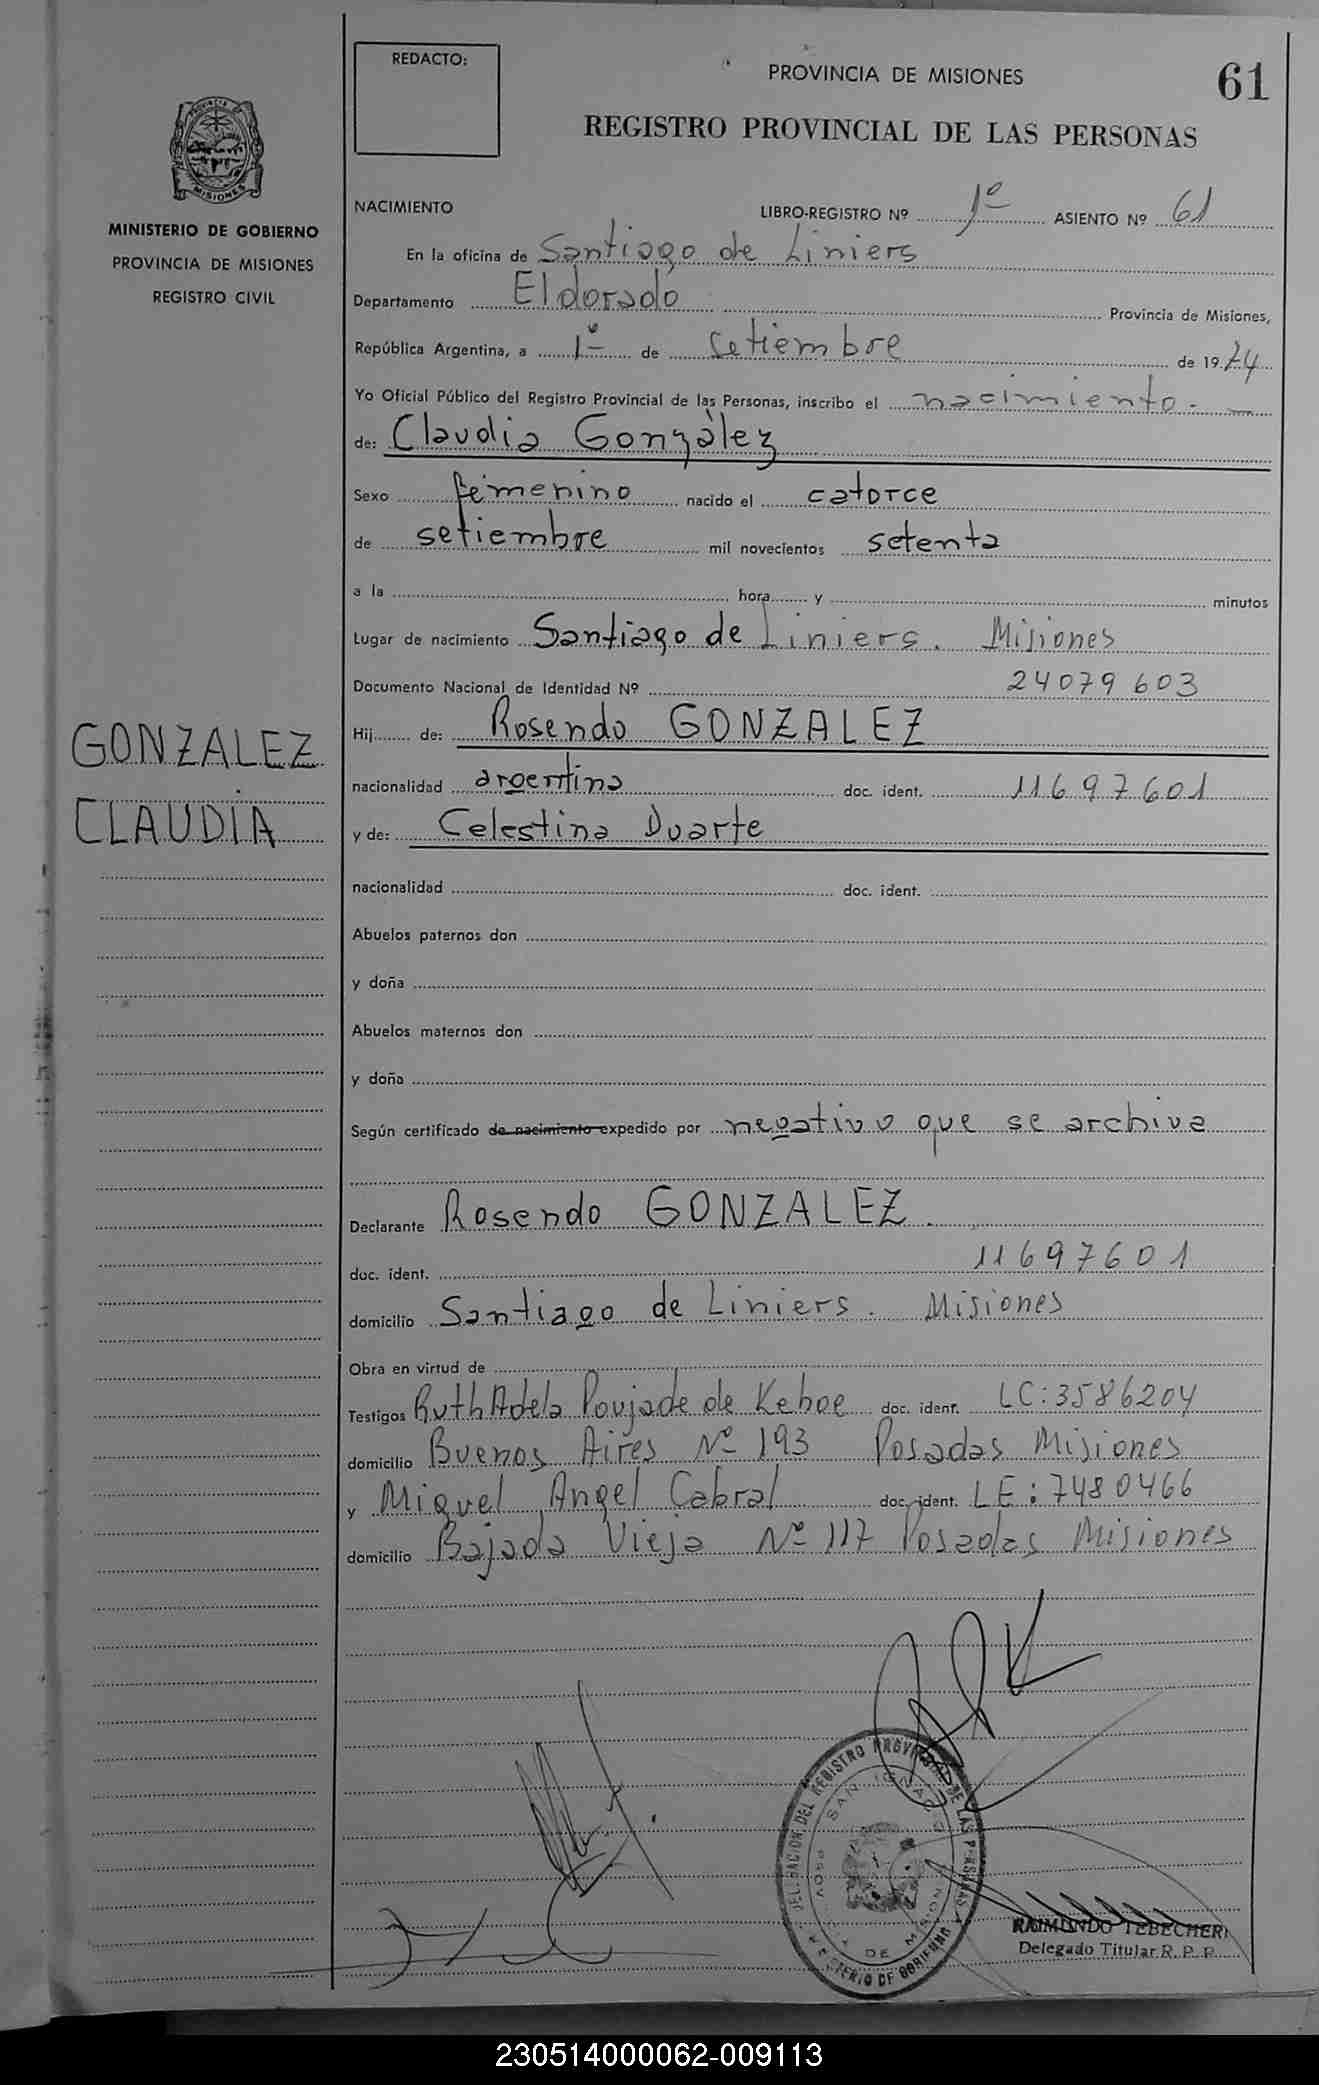 REDACTO:
PROVINCIA DE MISIONES
61
REGISTRO PROVINCIAL DE LAS PERSONAS
MISIONES
MINISTERIO DE GOBIERNO
PROVINCIA DE MISIONES
REGISTRO CIVIL
NACIMIENTO LIBRO-REGISTRO Nº 1º ASIENTO Nº 61
En la oficina de Santiago de Liniers
Departamento Eldorado Provincia de Misiones,
República Argentina, a 1º de setiembre de 1974
Yo Oficial Público del Registro Provincial de las Personas, inscribo el nacimiento.
de: Claudia González
Sexo femenino nacido el catorce
de setiembre mil novecientos setenta
a la hora y minutos
Lugar de nacimiento Santiago de Liniers. Misiones
Documento Nacional de Identidad Nº 24079603
Hij de: Rosendo GONZALEZ
GONZALEZ
CLAUDIA
nacionalidad argentina doc. ident. 11697601
y de: Celestina Duarte
nacionalidad doc. ident.
Abuelos paternos don
y doña
Abuelos maternos don
y doña
Según certificado de nacimiento expedido por negativo que se archiva
Declarante Rosendo GONZALEZ.
doc. ident. 11697601
domicilio Santiago de Liniers. Misiones
Obra en virtud de
Testigos Ruth Adela Poujade de Kehoe doc. ident. LC: 3586204
domicilio Buenos Aires Nº 193 Posadas Misiones
y Miguel Angel Cabral doc. ident. LE: 7480466
domicilio Bajada Vieja Nº 117 Posadas Misiones
DEL REGISTRO PROVINCIAL DE LAS PERSONAS
SAN IGNACIO
DE MISIONES
MINISTERIO DE GOBIERNO
RAIMUNDO TEBECHERI
Delegado Titular R. P. P.
230514000062-009113